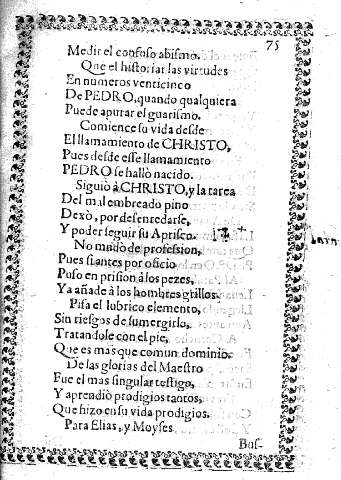 75
Medir el confuso abismo.
Que el historiar las virtudes
En numeros venticinco
De PEDRO, quando qualquiera
Puede apurar el guarismo.
Comience su vida desde
El llamamiento de CHRISTO,
Pues desde esse llamamiento
PEDRO se hallò nacido.
Siguiò à CHRISTO, y la tarea
Del mal embreado pino
Dexò, por desenredarse,
Y poder seguir su Aprisco.
No mudò de profession,
Pues si antes por oficio
Puso en prision à los pezes,
Ya añade à los hombres grillos.
Pisa el lubrico elemento,
Sin riesgos de sumergirlo,
Tratandole con el pie,
Que es mas que comun dominio.
De las glorias del Maestro
Fue el mas singular testigo,
Y aprendiò prodigios tantos,
Que hizo en su vida prodigios.
Para Elias, y Moyses
Bus-